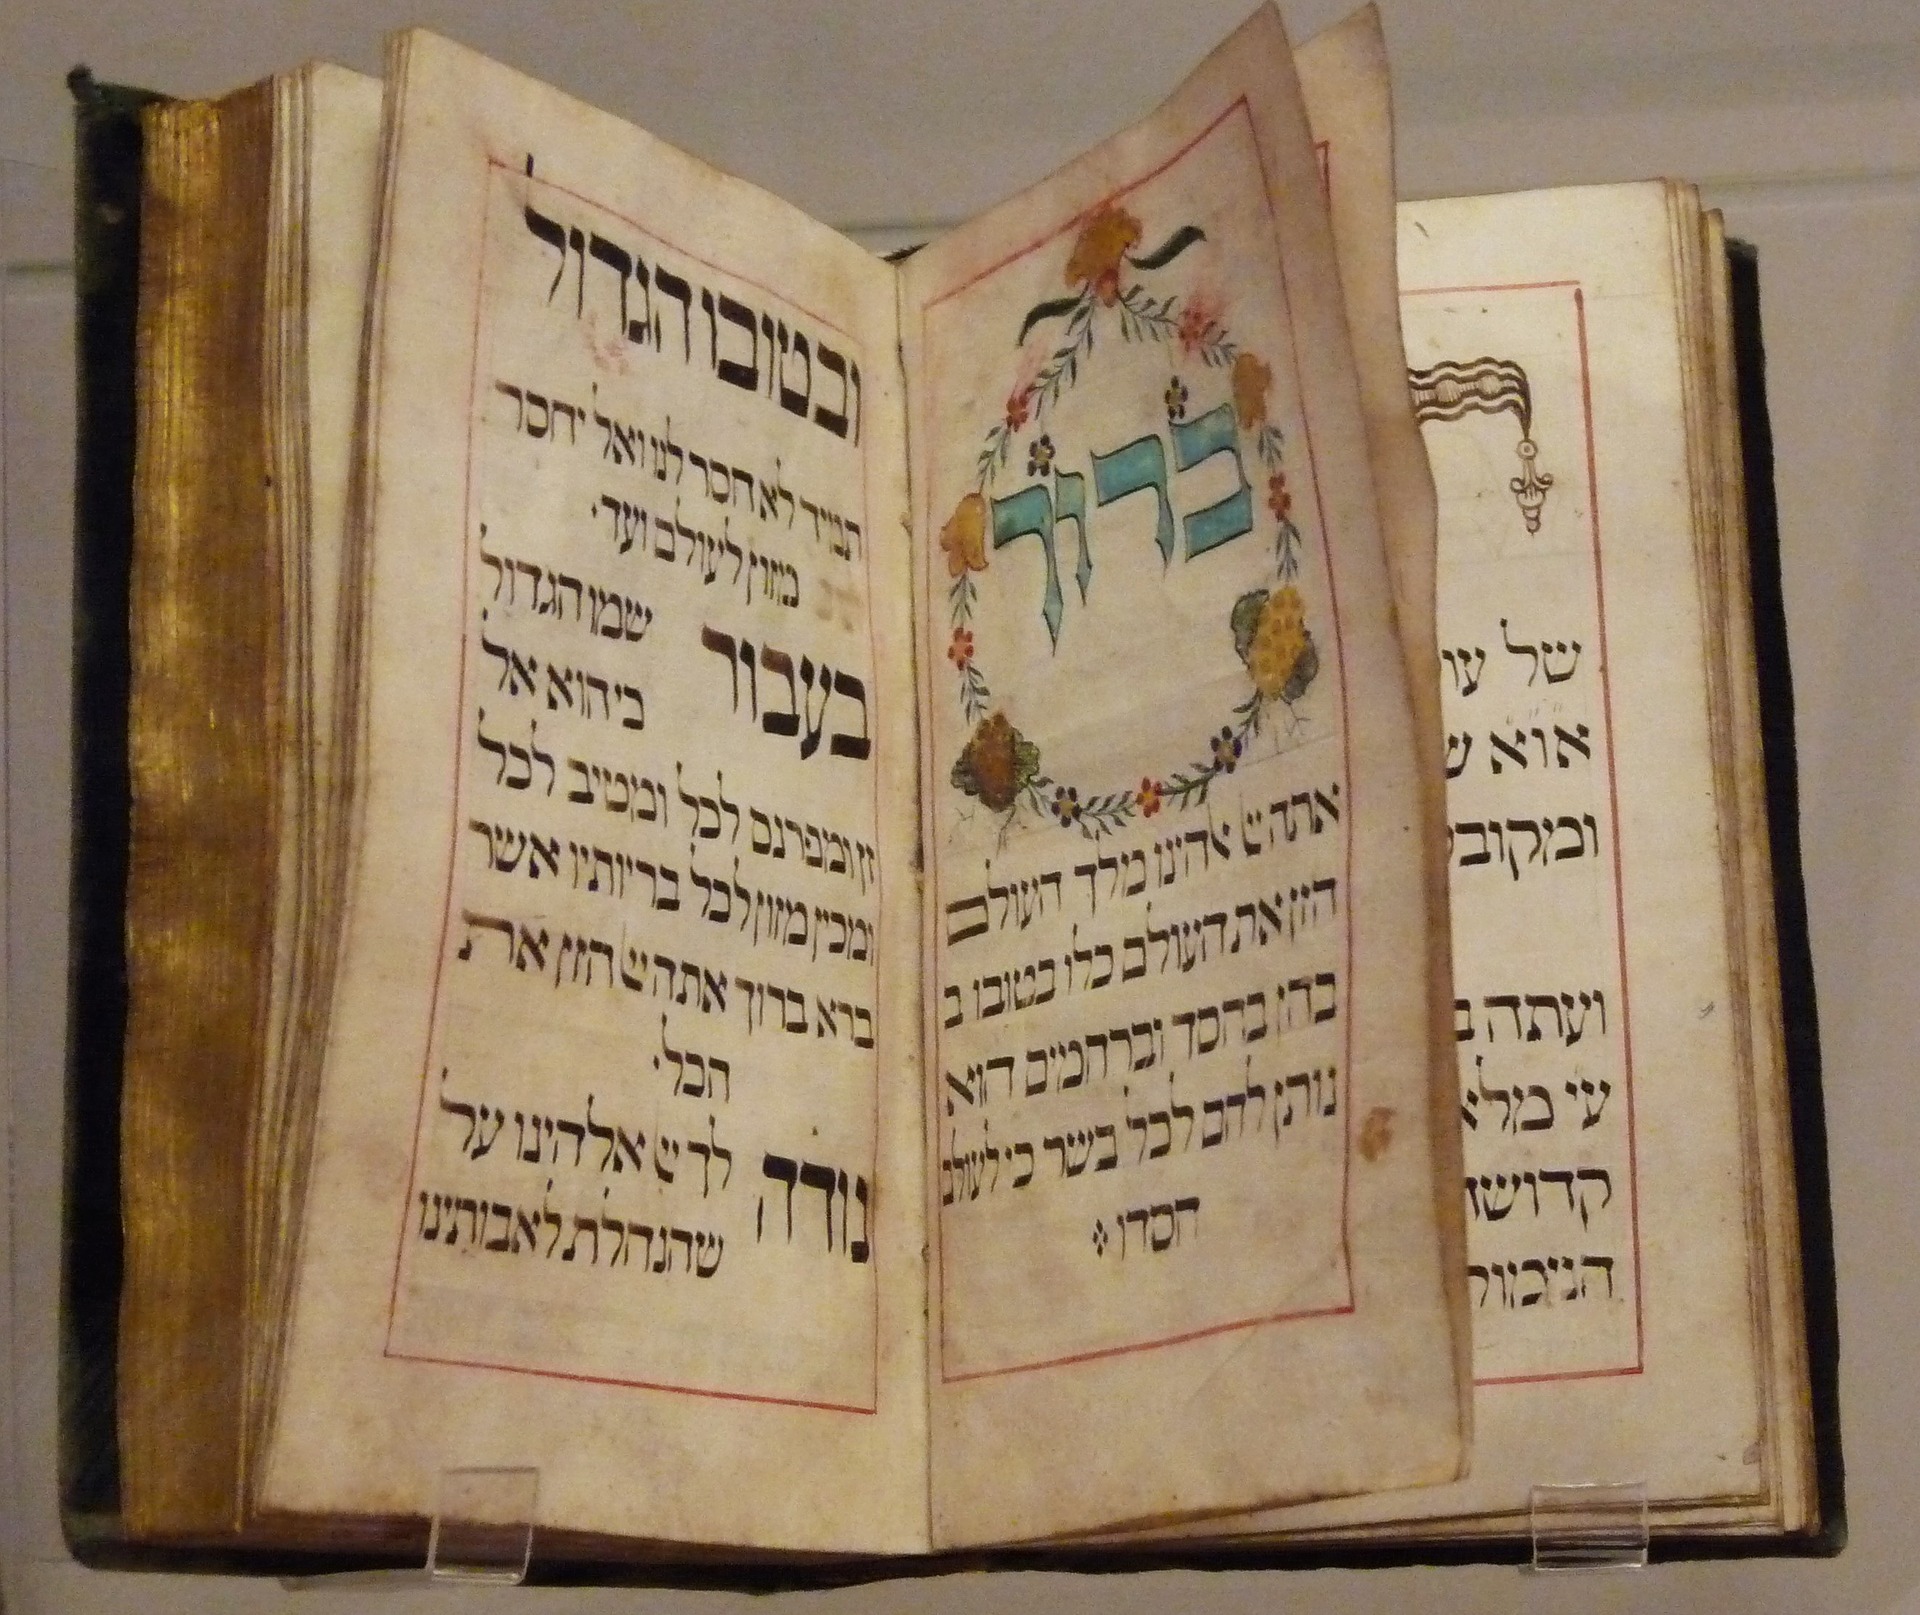 של
אוא
ועתה
עי
ברוך
אתה יי אלהינו מלך העולם
הזן את העולם כלו בטובו ב
בחן בחסד וברחמים הוא
נותן לחם לכל בשר כי לעולם
חסדו
ובטובו הגדול
תמיד לא חסר לנו ואל יחסר
מזון לעולם ועד·
בעבור שמו הגדול
כי הוא אל
זן ומפרנס לכל ומטיב לכל
ומכין מזון לכל בריותיו אשר
ברא ברוך אתה יי הזן את
הכל·
נודה לך יי אלהינו על
שהנחלת לאבותינו